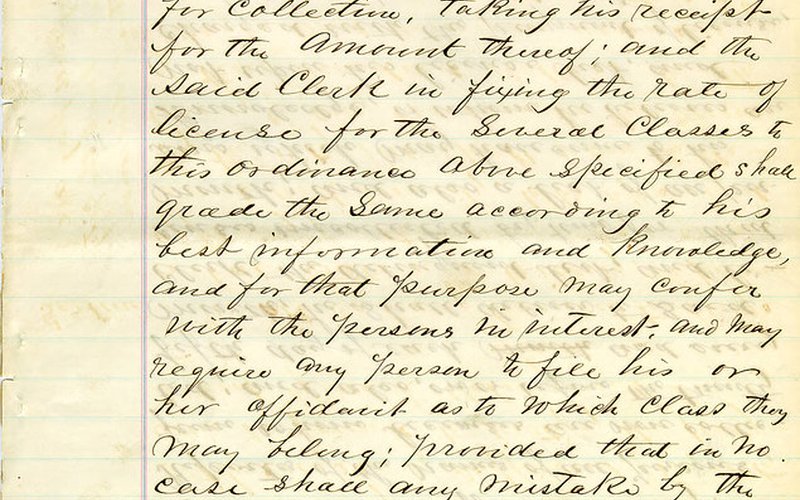 for Collection, taking his receipt
for the Amount thereof; and the
said Clerk in fixing the rate of
license for the Several Classes to
this ordinance above specified shall
grade the Same according to his
best information and knowledge,
and for that purpose may confer
with the persons in interest, and may
require any person to file his or
her affidavit as to which Class they
may belong; provided that in no
case shall any mistake by the